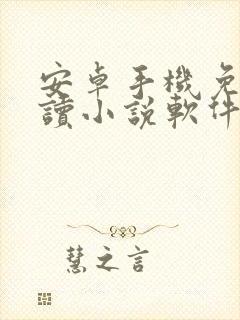 安卓手機免
讀小說軟件
慧之言